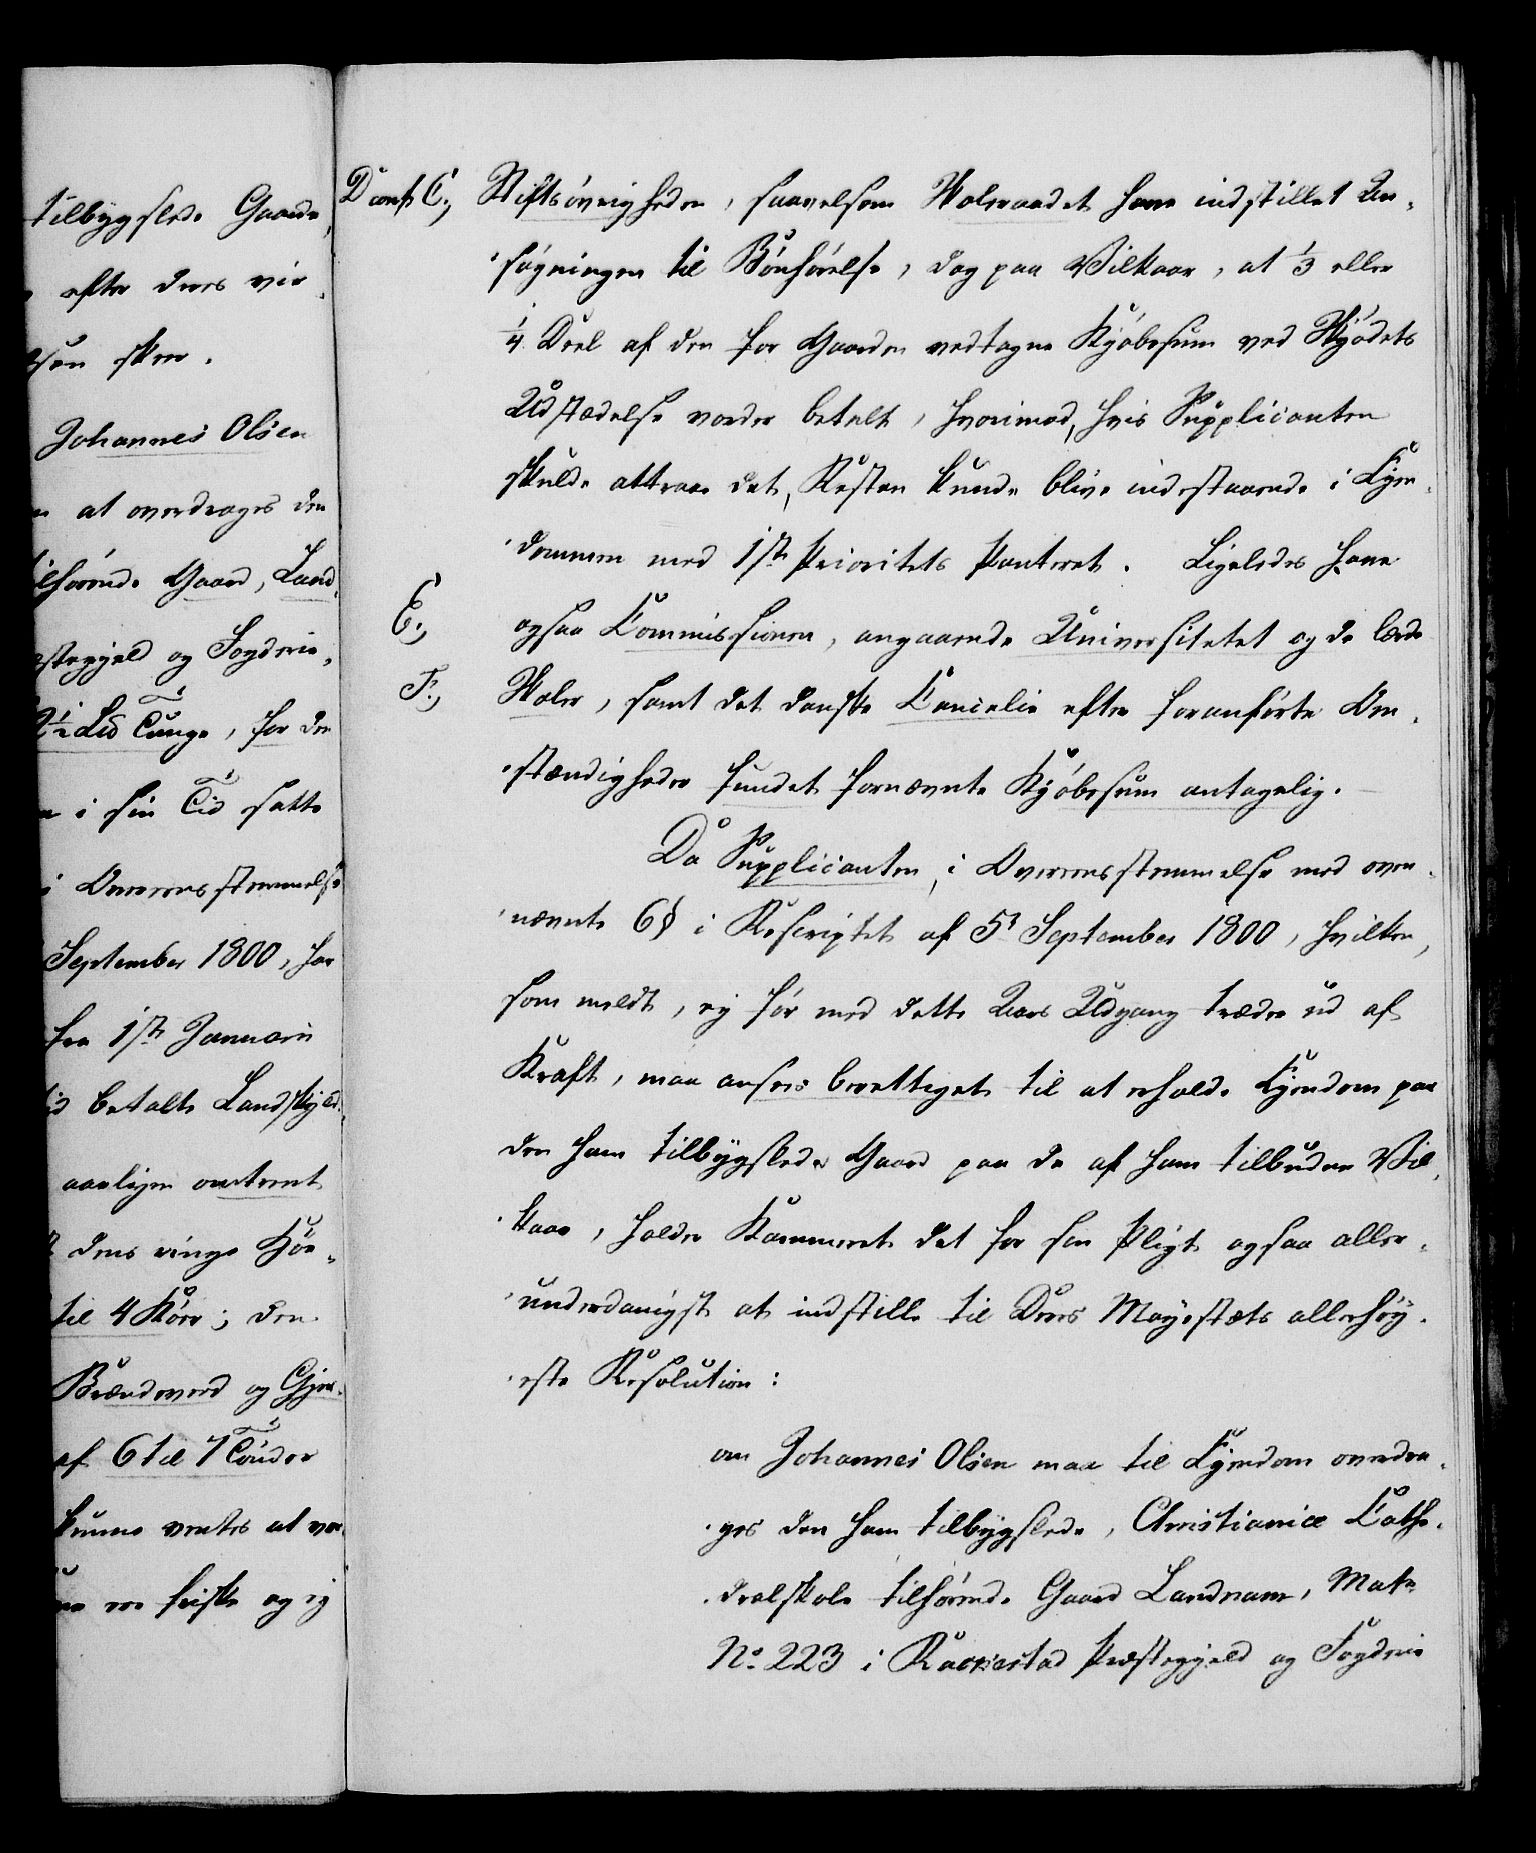 tilbygslede Gaarde,
efter deres vir-
sen skeer.
Johannes Olsen
at overdrages den
tilhørende Gaard, Land-
stegjeld og Fogderie,
2½ Lđ Tunge, for den
i sin Tid satte
i Overeensstemmelse
September 1800, har
fra 1ste Januarii
betalte Landskyld
aarligen omtrent
dens ringe Høe-
til 4 Køer; den
Brændeveed og Gjer-
af 6 til 7 Tønder
kunne ventes at
ere friske og ej
D conf. C., Stiftsøvrigheden, saavelsom Skoleraadet have indstillet An-
søgningen til Bønhørelse, dog paa Vilkaar, at 1/3 eller
1/4 Deel af den for Gaarden vedtagne Kjøbesum ved Skjødets
Udstædelse vorder betalt, hvorimod, hvis Supplicanten
skulde attraae det, Resten kunde blive indestaaende i Eyen-
dommen med 1ste Prioritets Panteret. Ligeledes have
E., ogsaa Commissionen, angaaende Universitetet og de lærde
F., Skoler, samt det danske Cancelie efter foranførte Om-
stændigheder fundet fornævnte Kjøbesum antagelig.
Da Supplicanten, i Overeensstemmelse med oven-
nævnte 6 § i Rescriptet af 5t September 1800, hvilken,
som meldt, ej før med dette Aars Udgang træder ud af
Kraft, maa ansees berettiget til at erholde Eyendom paa
den ham tilbygslede Gaard paa de af ham tilbudne Vil-
kaar, holder Kammeret det for sin Pligt ogsaa aller-
underdanigst at indstille til Deres Mayestæts allerhøy-
este Resolution:
om Johannes Olsen maa til Eyendom overdra-
ges den ham tilbygslede, Christianiæ Cathe-
dralskole tilhørende Gaard Landnam, Matr.
No. 223 i Rackestad Præstegjeld og Fogderie